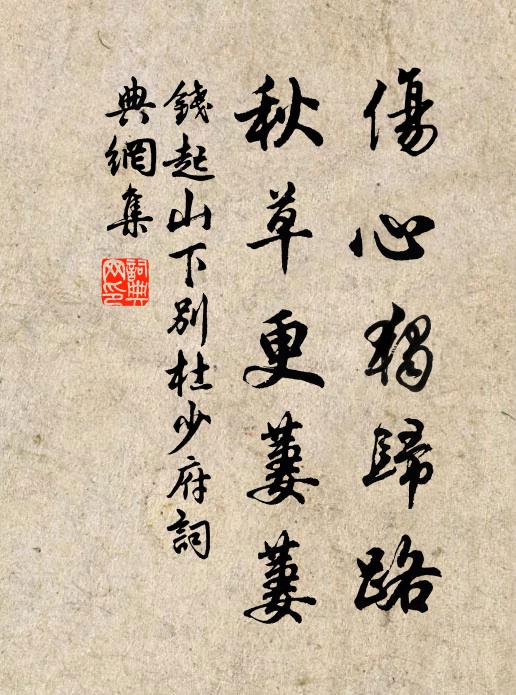 傷心獨歸路
秋草更萋萋
錢起山下別杜少府詞
典網集
詞典
网印